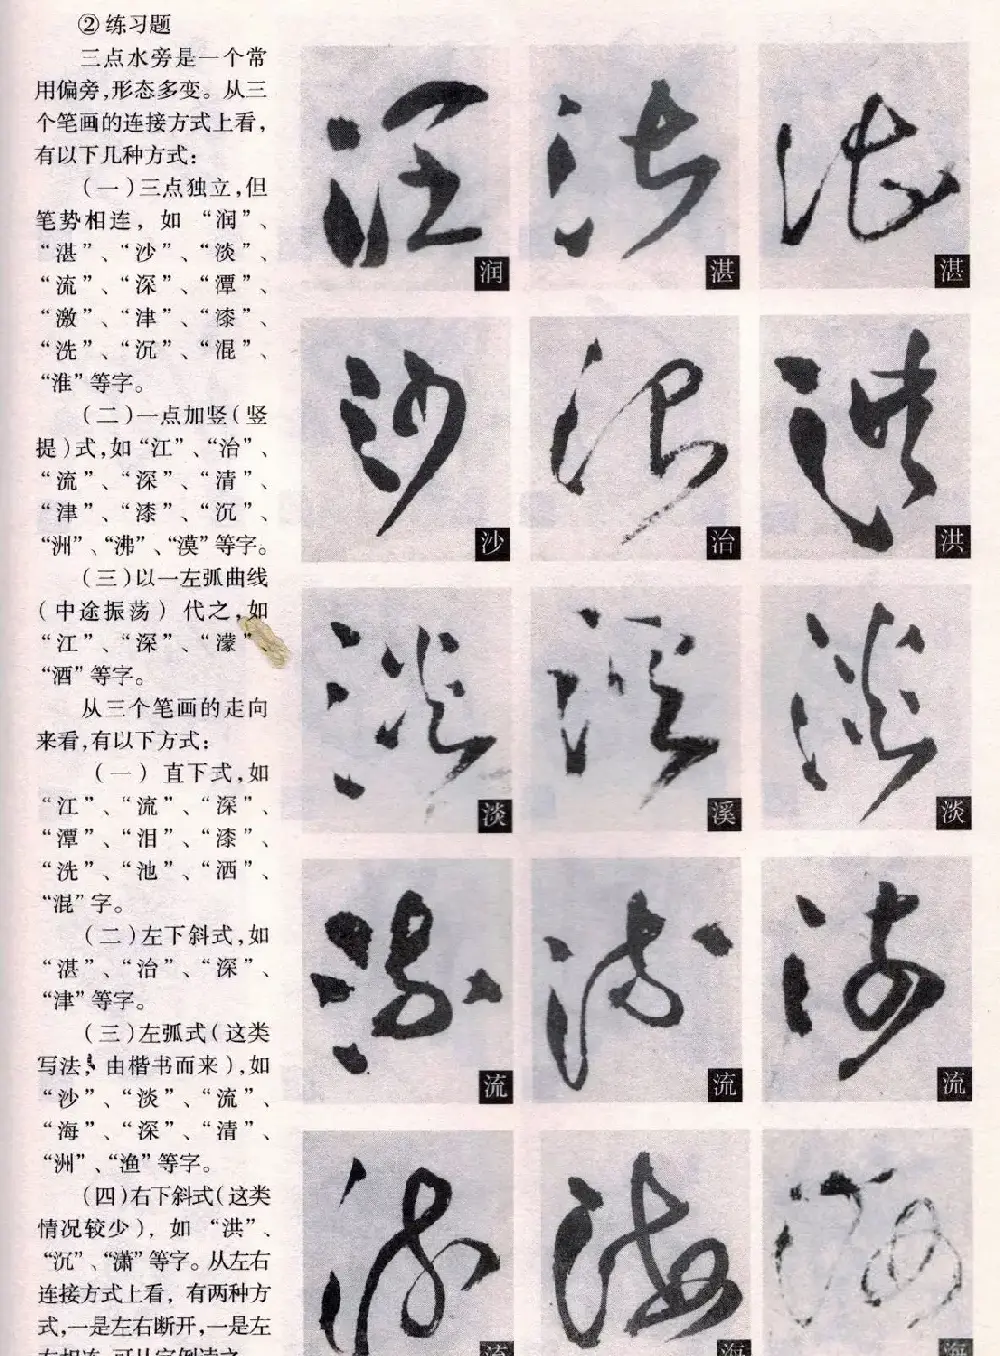 ②练习题
三点水旁是一个常
用偏旁,形态多变。从三
个笔画的连接方式上看,
有以下几种方式:
(一)三点独立,但
笔势相连,如“润”、
“湛”、“沙”、“淡”、
“流”、“深”、“潭”、
“激”、“津”、“漆”、
“洗”、“沉”、“混”、
“淮”等字。
(二)一点加竖(竖
提)式,如“江”、“治”、
“流”、“深”、“清”、
“津”、“漆”、“沉”、
“洲”、“沸”、“漠”等字。
(三)以一左弧曲线
(中途振荡)代之,如
“江”、“深”、“濛”
“酒”等字。
从三个笔画的走向
来看,有以下方式:
(一)直下式,如
“江”、“流”、“深”、
“潭”、“泪”、“漆”、
“洗”、“池”、“洒”、
“混”字。
(二)左下斜式,如
“湛”、“治”、“深”、
“津”等字。
(三)左弧式(这类
写法,由楷书而来),如
“沙”、“淡”、“流”、
“海”、“深”、“清”、
“洲”、“渔”等字。
(四)右下斜式(这类
情况较少),如“洪”、
“沉”、“潇”等字。从左右
连接方式上看,有两种方
式,一是左右断开,一是左
右相连,可从字例读之
润 湛 湛
沙 治 洪
淡 溪 淡
流 流 流
流 海 海